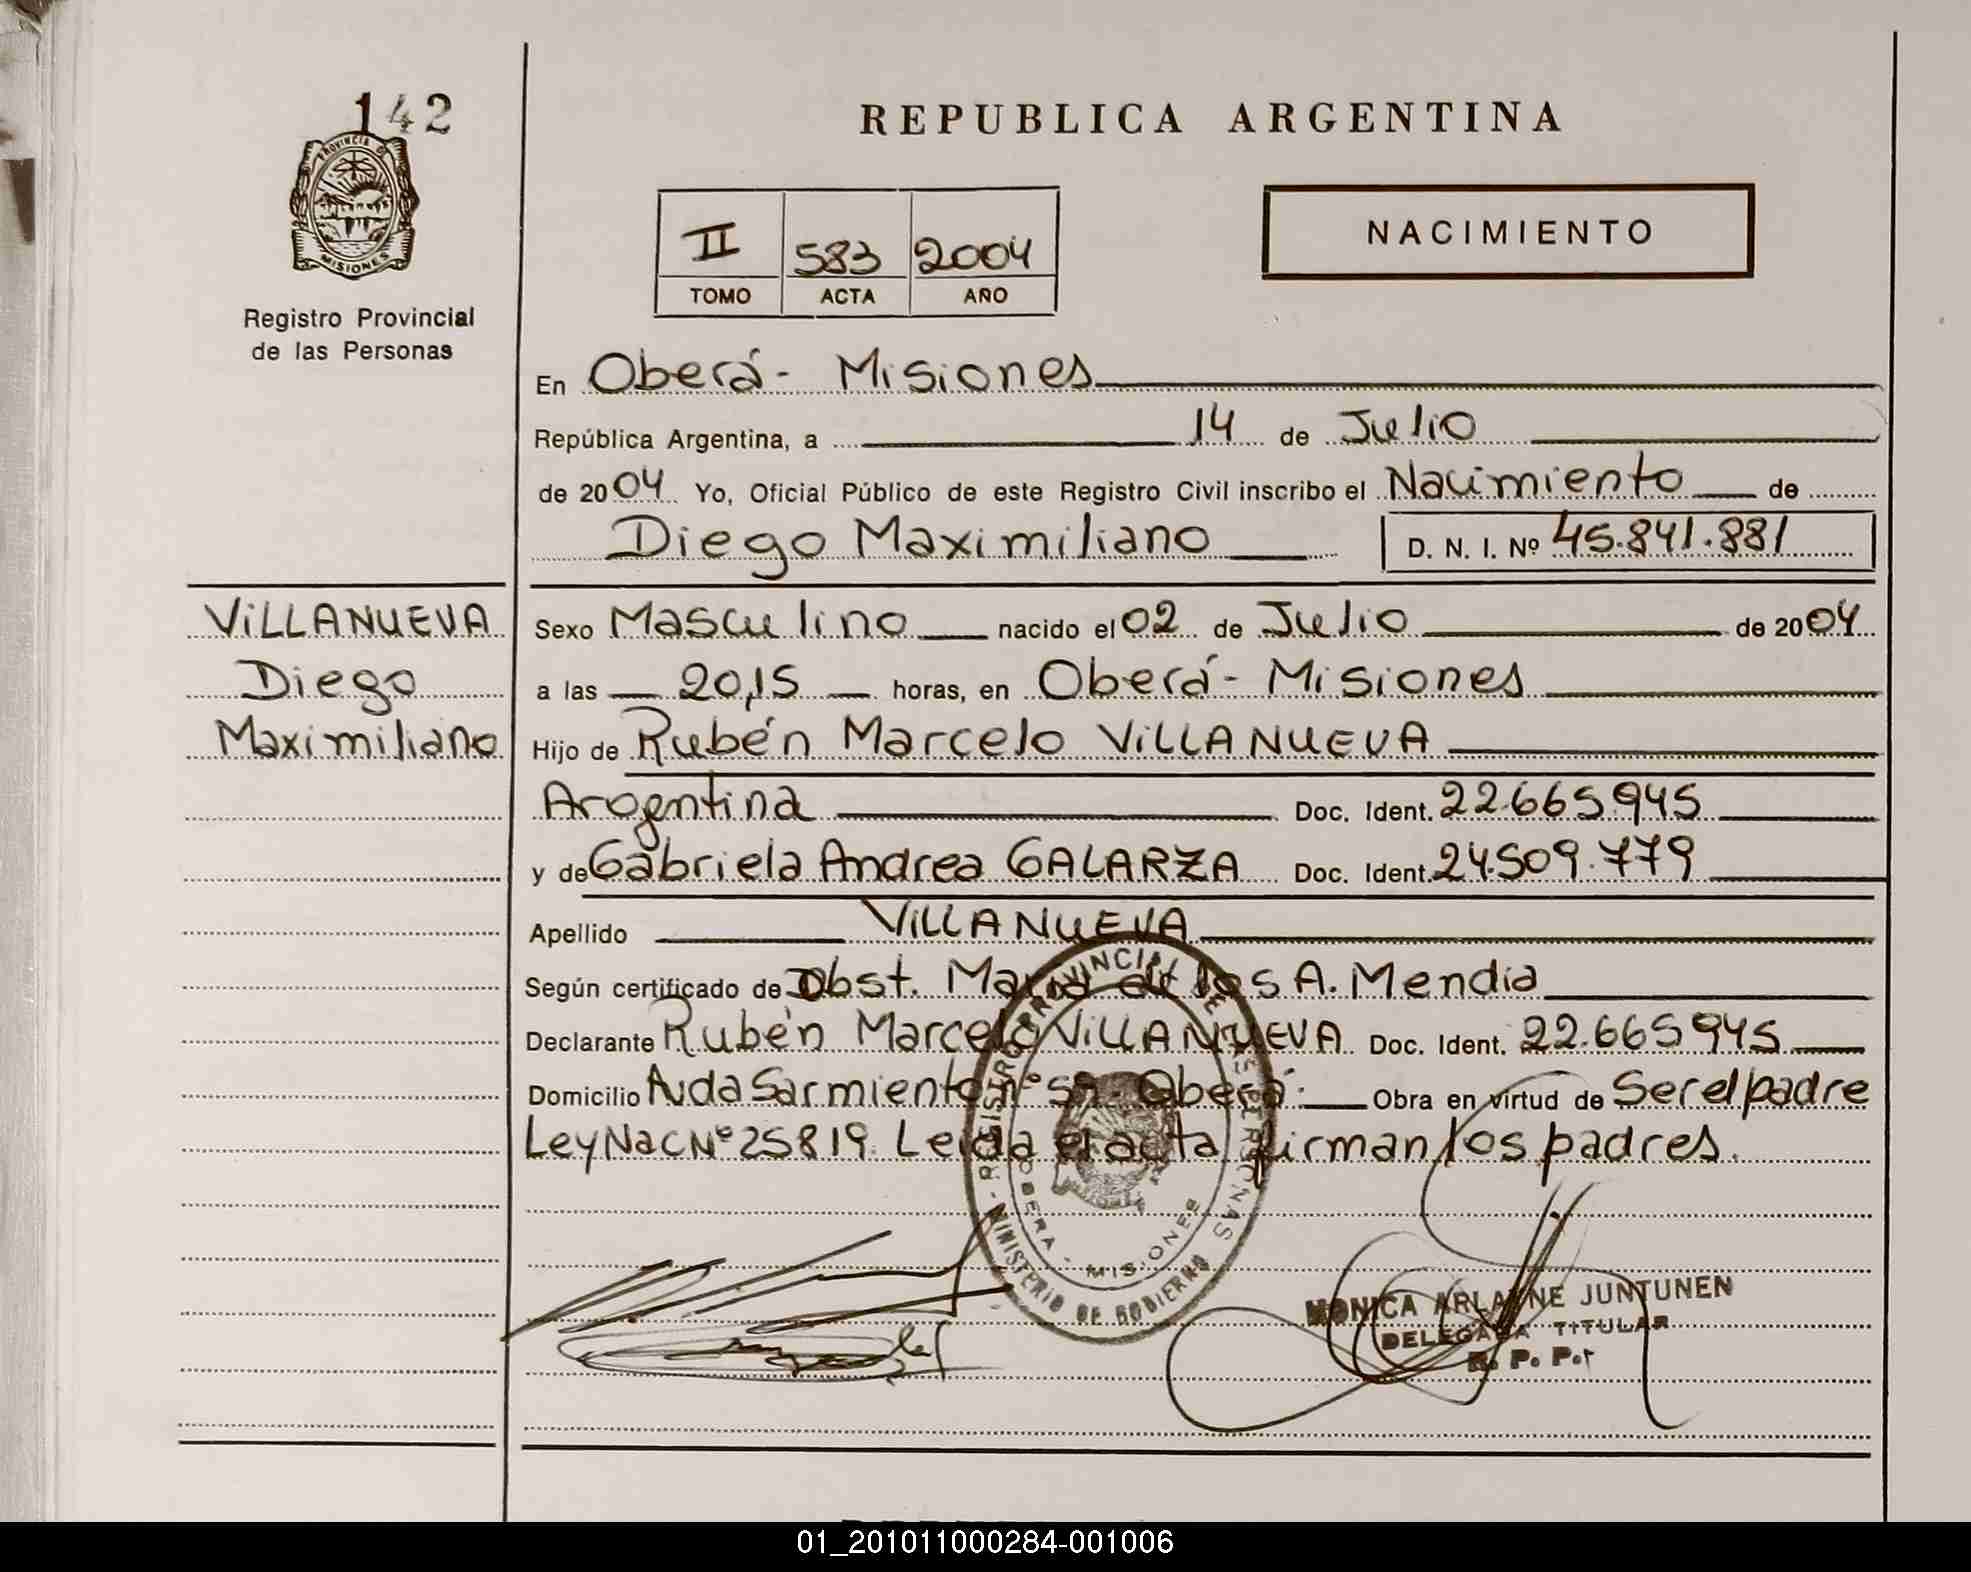 142
PROVINCIA DE
MISIONES
Registro Provincial
de las Personas
REPUBLICA ARGENTINA
II 583 2004
TOMO ACTA AÑO
NACIMIENTO
En Oberá - Misiones
República Argentina, a 14 de Julio
de 2004 Yo, Oficial Público de este Registro Civil inscribo el Nacimiento de
Diego Maximiliano D. N. I. Nº 45.841.881
VILLANUEVA
Diego
Maximiliano
Sexo Masculino nacido el 02 de Julio de 2004
a las 20,15 horas, en Oberá - Misiones
Hijo de Rubén Marcelo VILLANUEVA
Argentina Doc. Ident. 22.665.945
y de Gabriela Andrea GALARZA Doc. Ident. 24.509.779
Apellido VILLANUEVA
Según certificado de Obst. María de los A. Mendia
Declarante Rubén Marcelo VILLANUEVA Doc. Ident. 22.665945
Domicilio Avda Sarmiento nº sn. Oberá. Obra en virtud de Ser el padre
Ley Nac Nº 25819. Leida el acta firman los padres.
REGISTRO PROVINCIAL DE LAS PERSONAS
OBERA - MISIONES
MINISTERIO DE GOBIERNO
MONICA ARLAYNE JUNTUNEN
DELEGADA TITULAR
R. P. P.
01_201011000284-001006